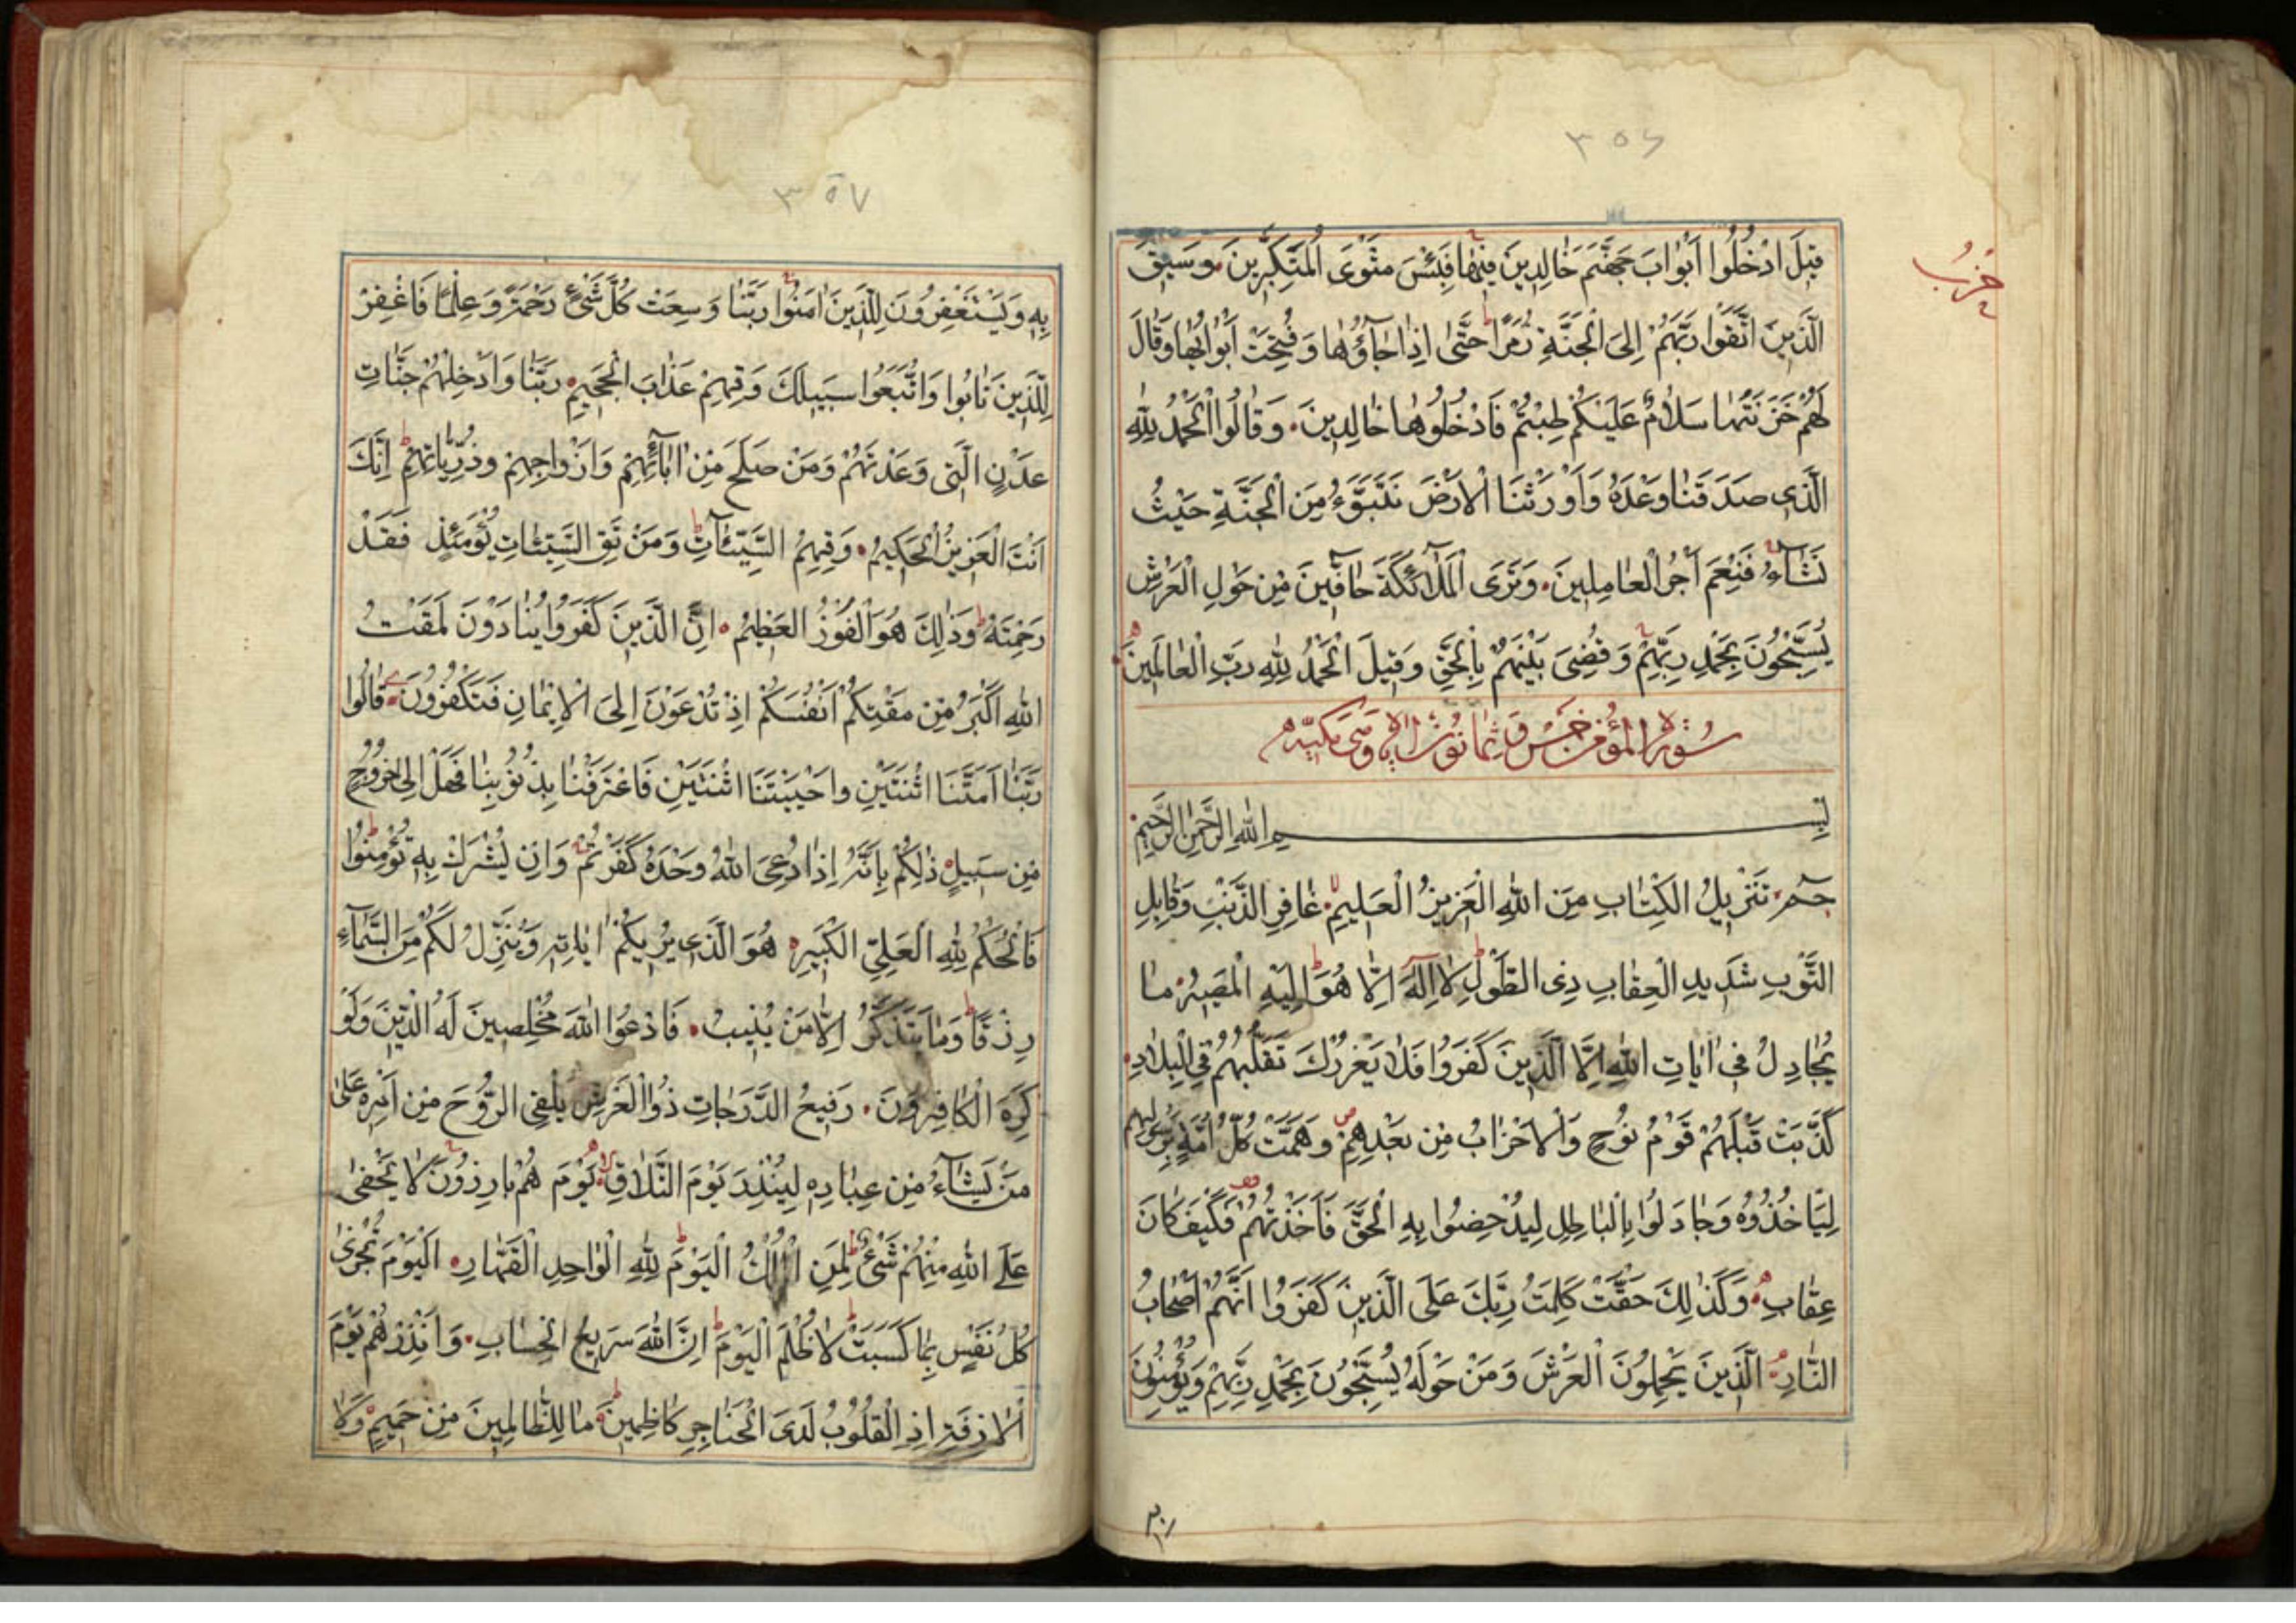 ٣٥٦
حزب
قِيلَ ادْخُلُوا أَبْوَابَ جَهَنَّمَ خَالِدِينَ فِيهَا فَبِئْسَ مَثْوَى الْمُتَكَبِّرِينَ وَسِيقَ
الَّذِينَ اتَّقَوْا رَبَّهُمْ إِلَى الْجَنَّةِ زُمَرًا حَتَّى إِذَا جَاؤُهَا وَفُتِحَتْ أَبْوَابُهَا وَقَالَ
لَهُمْ خَزَنَتُهَا سَلَامٌ عَلَيْكُمْ طِبْتُمْ فَادْخُلُوهَا خَالِدِينَ وَقَالُوا الْحَمْدُ لِلَّهِ
الَّذِي صَدَقَنَا وَعْدَهُ وَأَوْرَثَنَا الْأَرْضَ نَتَبَوَّءُ مِنَ الْجَنَّةِ حَيْثُ
نَشَآءُ فَنِعْمَ أَجْرُ الْعَامِلِينَ وَتَرَى الْمَلَآئِكَةَ حَآفِّينَ مِنْ حَوْلِ الْعَرْشِ
يُسَبِّحُونَ بِحَمْدِ رَبِّهِمْ وَقُضِيَ بَيْنَهُمْ بِالْحَقِّ وَقِيلَ الْحَمْدُ لِلَّهِ رَبِّ الْعَالَمِينَ
سورة المؤمن خمس وثمانون اية وهي مكية
بِسْمِ اللَّهِ الرَّحْمَنِ الرَّحِيمِ
حم تَنْزِيلُ الْكِتَابِ مِنَ اللَّهِ الْعَزِيزِ الْعَلِيمِ غَافِرِ الذَّنْبِ وَقَابِلِ
التَّوْبِ شَدِيدِ الْعِقَابِ ذِي الطَّوْلِ لَا إِلَهَ إِلَّا هُوَ إِلَيْهِ الْمَصِيرُ مَا
يُجَادِلُ فِي آيَاتِ اللَّهِ إِلَّا الَّذِينَ كَفَرُوا فَلَا يَغْرُرْكَ تَقَلُّبُهُمْ فِي الْبِلَادِ
كَذَّبَتْ قَبْلَهُمْ قَوْمُ نُوحٍ وَالْأَحْزَابُ مِنْ بَعْدِهِمْ وَهَمَّتْ كُلُّ أُمَّةٍ بِرَسُولِهِمْ
لِيَأْخُذُوهُ وَجَادَلُوا بِالْبَاطِلِ لِيُدْحِضُوا بِهِ الْحَقَّ فَأَخَذْتُهُمْ فَكَيْفَ كَانَ
عِقَابِ وَكَذَلِكَ حَقَّتْ كَلِمَتُ رَبِّكَ عَلَى الَّذِينَ كَفَرُوا أَنَّهُمْ أَصْحَابُ
النَّارِ الَّذِينَ يَحْمِلُونَ الْعَرْشَ وَمَنْ حَوْلَهُ يُسَبِّحُونَ بِحَمْدِ رَبِّهِمْ وَيُؤْمِنُونَ
٣٥٧
بِهِ وَيَسْتَغْفِرُونَ لِلَّذِينَ آمَنُوا رَبَّنَا وَسِعْتَ كُلَّ شَيْءٍ رَحْمَةً وَعِلْمًا فَاغْفِرْ
لِلَّذِينَ تَابُوا وَاتَّبَعُوا سَبِيلَكَ وَقِهِمْ عَذَابَ الْجَحِيمِ رَبَّنَا وَأَدْخِلْهُمْ جَنَّاتِ
عَدْنٍ الَّتِي وَعَدْتَهُمْ وَمَنْ صَلَحَ مِنْ آبَآئِهِمْ وَأَزْوَاجِهِمْ وَذُرِّيَّاتِهِمْ إِنَّكَ
أَنْتَ الْعَزِيزُ الْحَكِيمُ وَقِهِمُ السَّيِّئَاتِ وَمَنْ تَقِ السَّيِّئَاتِ يَوْمَئِذٍ فَقَدْ
رَحِمْتَهُ وَذَلِكَ هُوَ الْفَوْزُ الْعَظِيمُ إِنَّ الَّذِينَ كَفَرُوا يُنَادَوْنَ لَمَقْتُ
اللَّهِ أَكْبَرُ مِنْ مَقْتِكُمْ أَنْفُسَكُمْ إِذْ تُدْعَوْنَ إِلَى الْإِيمَانِ فَتَكْفُرُونَ قَالُوا
رَبَّنَا أَمَتَّنَا اثْنَتَيْنِ وَأَحْيَيْتَنَا اثْنَتَيْنِ فَاعْتَرَفْنَا بِذُنُوبِنَا فَهَلْ إِلَى خُرُوجٍ
مِنْ سَبِيلٍ ذَلِكُمْ بِأَنَّهُ إِذَا دُعِيَ اللَّهُ وَحْدَهُ كَفَرْتُمْ وَإِنْ يُشْرَكْ بِهِ تُؤْمِنُوا
فَالْحُكْمُ لِلَّهِ الْعَلِيِّ الْكَبِيرِ هُوَ الَّذِي يُرِيكُمْ آيَاتِهِ وَيُنَزِّلُ لَكُمْ مِنَ السَّمَآءِ
رِزْقًا وَمَا يَتَذَكَّرُ إِلَّا مَنْ يُنِيبُ فَادْعُوا اللَّهَ مُخْلِصِينَ لَهُ الدِّينَ وَلَوْ
كَرِهَ الْكَافِرُونَ رَفِيعُ الدَّرَجَاتِ ذُو الْعَرْشِ يُلْقِي الرُّوحَ مِنْ أَمْرِهِ عَلَى
مَنْ يَشَآءُ مِنْ عِبَادِهِ لِيُنْذِرَ يَوْمَ التَّلَاقِ يَوْمَ هُمْ بَارِزُونَ لَا يَخْفَى
عَلَى اللَّهِ مِنْهُمْ شَيْءٌ لِمَنِ الْمُلْكُ الْيَوْمَ لِلَّهِ الْوَاحِدِ الْقَهَّارِ الْيَوْمَ تُجْزَى
كُلُّ نَفْسٍ بِمَا كَسَبَتْ لَا ظُلْمَ الْيَوْمَ إِنَّ اللَّهَ سَرِيعُ الْحِسَابِ وَأَنْذِرْهُمْ يَوْمَ
الْآزِفَةِ إِذِ الْقُلُوبُ لَدَى الْحَنَاجِرِ كَاظِمِينَ مَا لِلظَّالِمِينَ مِنْ حَمِيمٍ وَلَا